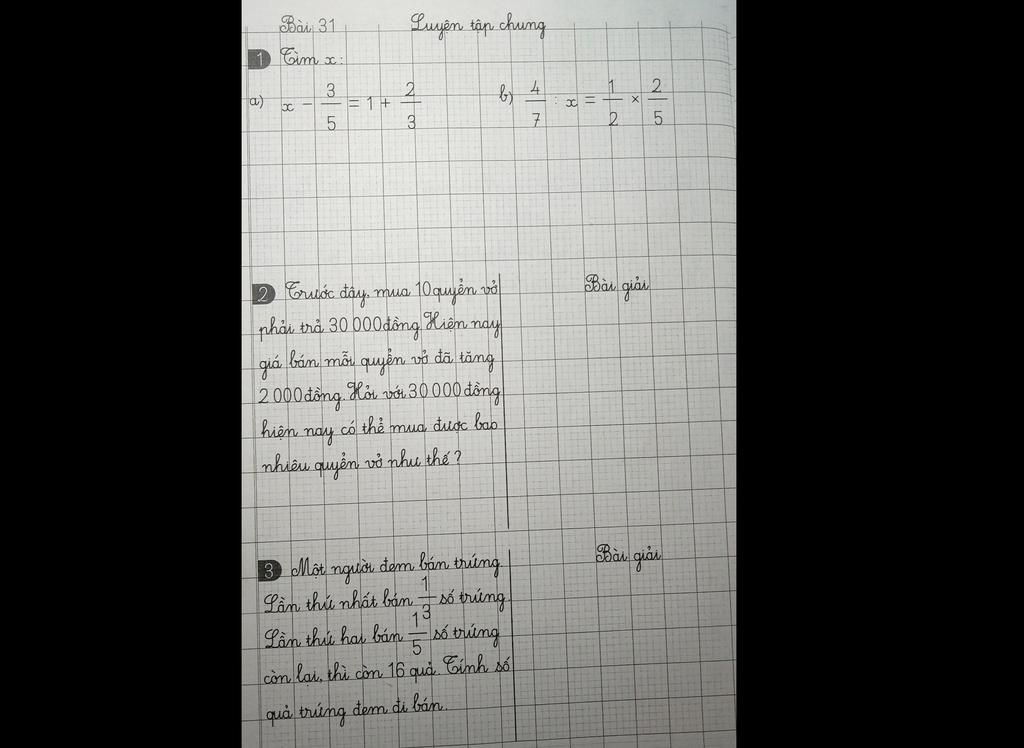 Bài 31 Luyện tập chung
1 Tìm x:
a) x - 3/5 = 1 + 2/3 b) 4/7 : x = 1/2 × 2/5
2 Trước đây, mua 10 quyển vở
phải trả 30 000 đồng. Hiện nay
giá bán mỗi quyển vở đã tăng
2 000 đồng. Hỏi với 30 000 đồng
hiện nay có thể mua được bao
nhiêu quyển vở như thế?
Bài giải
3 Một người đem bán trứng.
Lần thứ nhất bán 1/3 số trứng.
Lần thứ hai bán 1/5 số trứng
còn lại, thì còn 16 quả. Tính số
quả trứng đem đi bán.
Bài giải